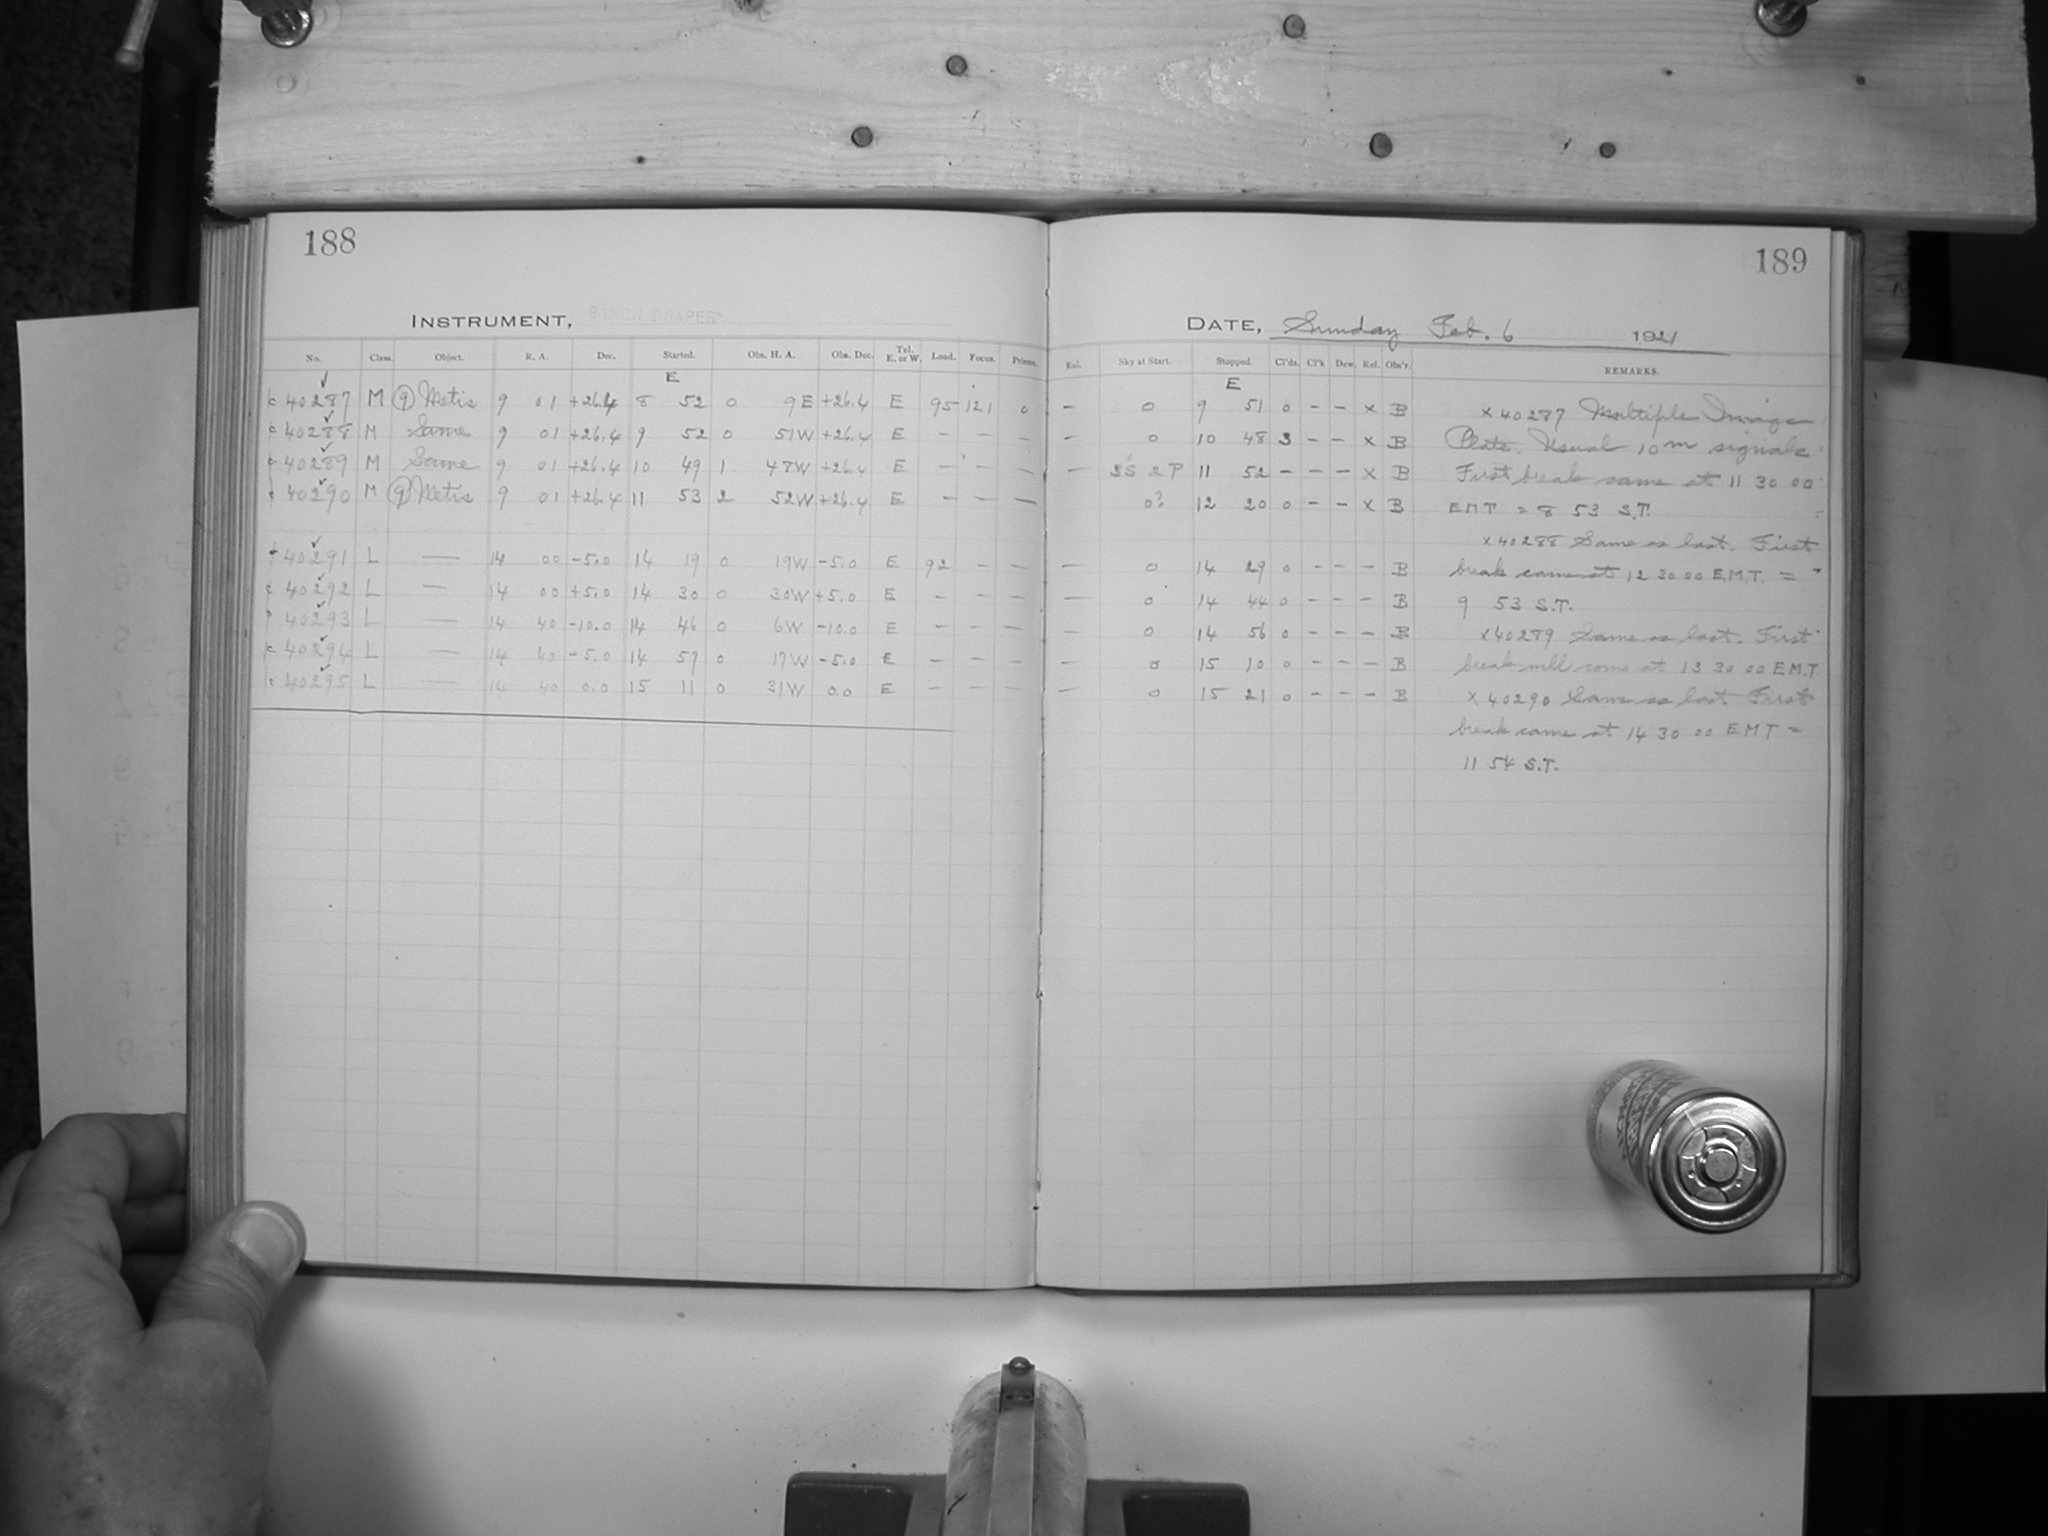 188
INSTRUMENT, 8-INCH DRAPER
No. Class. Object. R. A. Dec. Started. Obs. H. A. Obs. Dec. Tel. E. or W. Load. Focus. Prisms.
E
c 40287 M (9) Metis 9 01 +26.4 8 52 0 9 E +26.4 E 95 121 0
c 40288 M Same 9 01 +26.4 9 52 0 51 W +26.4 E – – –
c 40289 M Same 9 01 +26.4 10 49 1 47 W +26.4 E – – –
40290 M (9) Metis 9 01 +26.4 11 53 2 52 W +26.4 E – – –
40291 L — 14 00 –5.0 14 19 0 19 W –5.0 E 92 – –
c 40292 L — 14 00 +5.0 14 30 0 30 W +5.0 E – – –
40293 L — 14 40 –10.0 14 46 0 6 W –10.0 E – – –
c 40294 L — 14 40 –5.0 14 57 0 17 W –5.0 E – – –
c 40295 L — 14 40 0.0 15 11 0 31 W 0.0 E – – –
189
DATE, Sunday Feb. 6 1921
Sky at Start. Stopped. Cl'ds. Cl'k Dew. Rel. Obs'r. REMARKS.
E
– 0 9 51 0 – – x B
– 0 10 48 3 – – x B
– 2S 2P 11 52 – – – x B
0? 12 20 0 – – x B
– 0 14 29 0 – – – B
– 0 14 44 0 – – – B
– 0 14 56 0 – – – B
– 0 15 10 0 – – – B
– 0 15 21 0 – – – B
x 40287 Multiple Image
Plate. Usual 10m signals
First break came at 11 30 00
EMT = 8 53 S.T.
x 40288 Same as last. First
break came at 12 30 00 E.M.T. =
9 53 S.T.
x 40289 Same as last. First
break will come at 13 30 00 E.M.T
x 40290 Same as last First
break came at 14 30 00 EMT =
11 54 S.T.